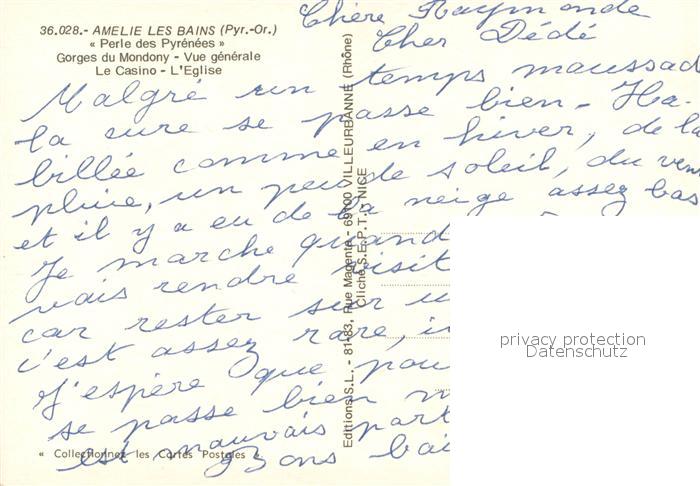 36.028.- AMELIE LES BAINS (Pyr.-Or.)
« Perle des Pyrénées »
Gorges du Mondony - Vue générale
Le Casino - L'Eglise
Chère Raymonde
Cher Dédé
Malgré un temps maussad
la cure se passe bien - Ha-
billée comme en hiver, de la
pluie, un peu de soleil, du ven
et il y a eu de la neige assez bas
Je marche quand
vais rendre visit
car rester sur u
c'est assez rare, i
J'espère que pou
se passe bien
est mauvais part
Bons bai
Editions S.L. - 81-83, Rue Magenta - 69100 VILLEURBANNE (Rhône)
Cliché S.E.P.T. - NICE
« Collectionnez les Cartes Postales »
privacy protection
Datenschutz